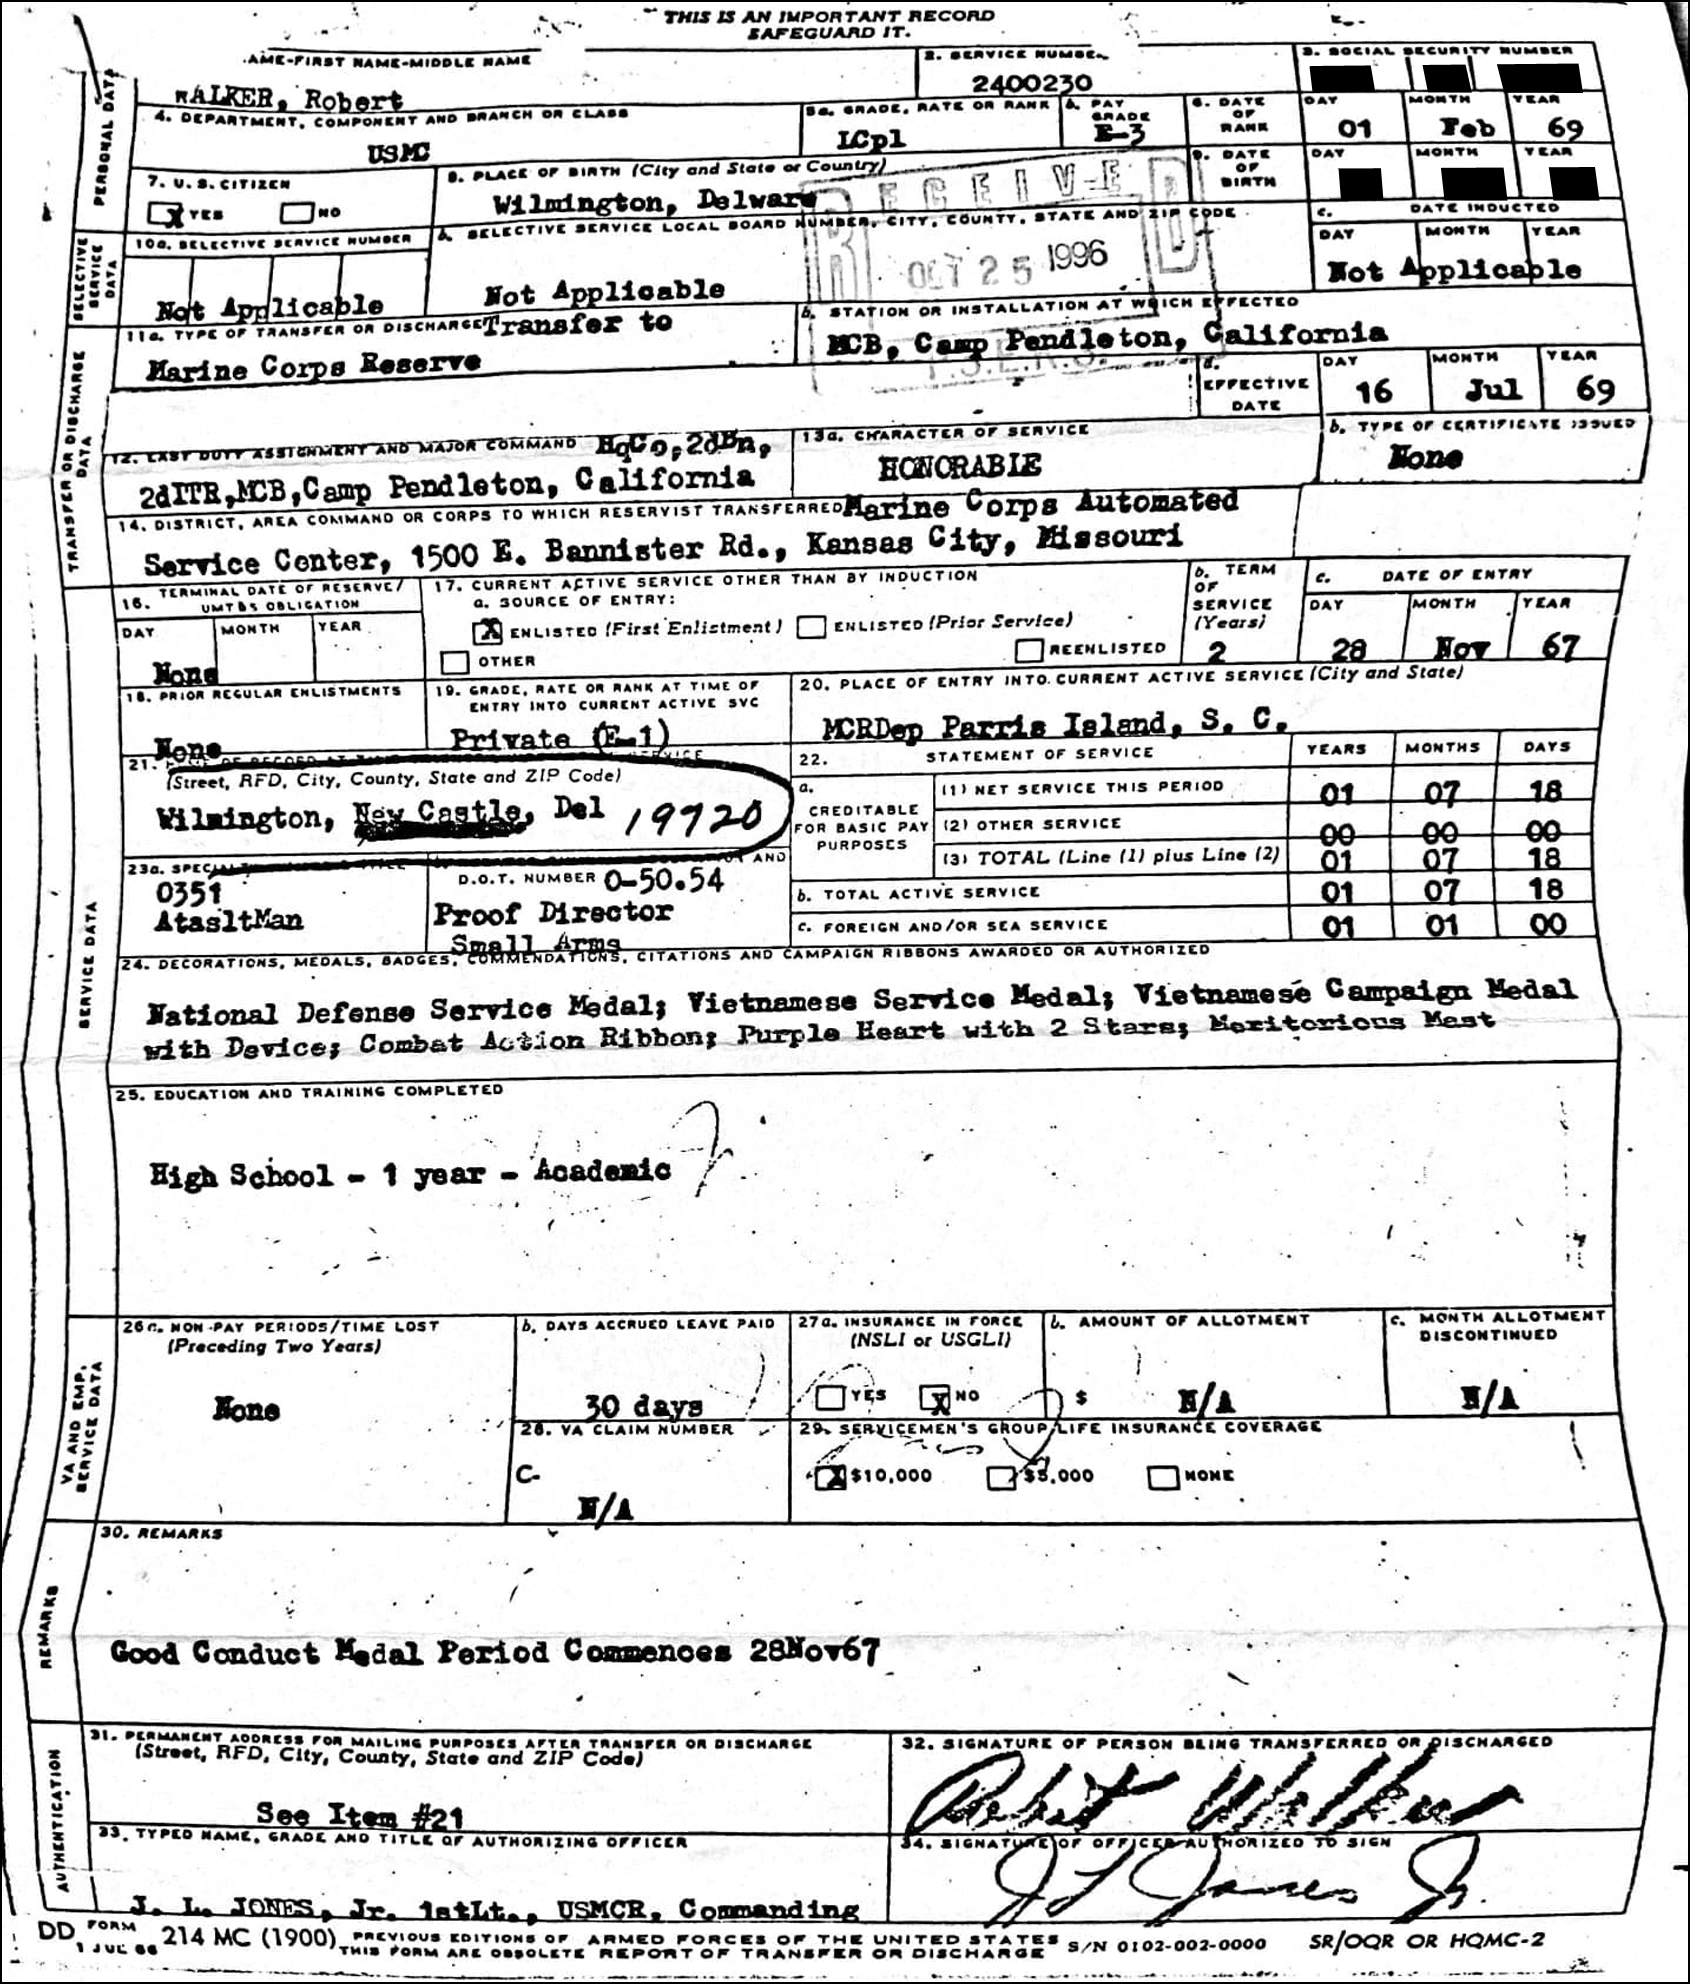 THIS IS AN IMPORTANT RECORD
SAFEGUARD IT.
AME-FIRST NAME-MIDDLE NAME
WALKER, Robert
2. SERVICE NUMBER
2400230
3. SOCIAL SECURITY NUMBER
4. DEPARTMENT, COMPONENT AND BRANCH OR CLASS
USMC
5a. GRADE, RATE OR RANK
LCpl
b. PAY GRADE
E-3
6. DATE OF RANK
DAY MONTH YEAR
01 Feb 69
7. U.S. CITIZEN
X YES NO
8. PLACE OF BIRTH (City and State or Country)
Wilmington, Delware
9. DATE OF BIRTH
DAY MONTH YEAR
RECEIVED
OCT 25 1996
10a. SELECTIVE SERVICE NUMBER
Not Applicable
b. SELECTIVE SERVICE LOCAL BOARD NUMBER, CITY, COUNTY, STATE AND ZIP CODE
Not Applicable
c. DATE INDUCTED
DAY MONTH YEAR
Not Applicable
11a. TYPE OF TRANSFER OR DISCHARGE Transfer to
Marine Corps Reserve
b. STATION OR INSTALLATION AT WHICH EFFECTED
MCB, Camp Pendleton, California
d. EFFECTIVE DATE
DAY MONTH YEAR
16 Jul 69
12. LAST DUTY ASSIGNMENT AND MAJOR COMMAND HqCo,2dBn,
2dITR,MCB,Camp Pendleton, California
13a. CHARACTER OF SERVICE
HONORABLE
b. TYPE OF CERTIFICATE ISSUED
None
14. DISTRICT, AREA COMMAND OR CORPS TO WHICH RESERVIST TRANSFERRED Marine Corps Automated
Service Center, 1500 E. Bannister Rd., Kansas City, Missouri
16. TERMINAL DATE OF RESERVE/
UMT&S OBLIGATION
DAY MONTH YEAR
None
17. CURRENT ACTIVE SERVICE OTHER THAN BY INDUCTION
a. SOURCE OF ENTRY:
X ENLISTED (First Enlistment) ENLISTED (Prior Service)
REENLISTED
OTHER
b. TERM OF SERVICE (Years)
2
c. DATE OF ENTRY
DAY MONTH YEAR
28 Nov 67
18. PRIOR REGULAR ENLISTMENTS
None
19. GRADE, RATE OR RANK AT TIME OF
ENTRY INTO CURRENT ACTIVE SVC
Private (E-1)
20. PLACE OF ENTRY INTO CURRENT ACTIVE SERVICE (City and State)
MCRDep Parris Island, S. C.
21.
(Street, RFD, City, County, State and ZIP Code)
Wilmington, New Castle, Del 19720
22. STATEMENT OF SERVICE YEARS MONTHS DAYS
a. CREDITABLE FOR BASIC PAY PURPOSES
(1) NET SERVICE THIS PERIOD 01 07 18
(2) OTHER SERVICE 00 00 00
(3) TOTAL (Line (1) plus Line (2) 01 07 18
b. TOTAL ACTIVE SERVICE 01 07 18
c. FOREIGN AND/OR SEA SERVICE 01 01 00
23a.
0351
AtasltMan
AND
D.O.T. NUMBER 0-50.54
Proof Director
Small Arms
24. DECORATIONS, MEDALS, BADGES, COMMENDATIONS, CITATIONS AND CAMPAIGN RIBBONS AWARDED OR AUTHORIZED
National Defense Service Medal; Vietnamese Service Medal; Vietnamese Campaign Medal
with Device; Combat Action Ribbon; Purple Heart with 2 Stars; Meritorious Mast
25. EDUCATION AND TRAINING COMPLETED
High School - 1 year - Academic
26a. NON-PAY PERIODS/TIME LOST
(Preceding Two Years)
None
b. DAYS ACCRUED LEAVE PAID
30 days
27a. INSURANCE IN FORCE
(NSLI or USGLI)
YES X NO
b. AMOUNT OF ALLOTMENT
$ N/A
c. MONTH ALLOTMENT
DISCONTINUED
N/A
28. VA CLAIM NUMBER
C-
N/A
29. SERVICEMEN'S GROUP LIFE INSURANCE COVERAGE
X $10,000 $5,000 NONE
30. REMARKS
Good Conduct Medal Period Commences 28Nov67
31. PERMANENT ADDRESS FOR MAILING PURPOSES AFTER TRANSFER OR DISCHARGE
(Street, RFD, City, County, State and ZIP Code)
See Item #21
32. SIGNATURE OF PERSON BEING TRANSFERRED OR DISCHARGED
Robert Walker
33. TYPED NAME, GRADE AND TITLE OF AUTHORIZING OFFICER
J. L. JONES, Jr. 1stLt., USMCR, Commanding
34. SIGNATURE OF OFFICER AUTHORIZED TO SIGN
J L Jones Jr.
DD FORM 1 JUL 66 214 MC (1900) PREVIOUS EDITIONS OF THIS FORM ARE OBSOLETE
ARMED FORCES OF THE UNITED STATES
REPORT OF TRANSFER OR DISCHARGE
S/N 0102-002-0000 SR/OQR OR HQMC-2
PERSONAL DATA
SELECTIVE SERVICE DATA
TRANSFER OR DISCHARGE DATA
SERVICE DATA
VA AND EMP. SERVICE DATA
REMARKS
AUTHENTICATION